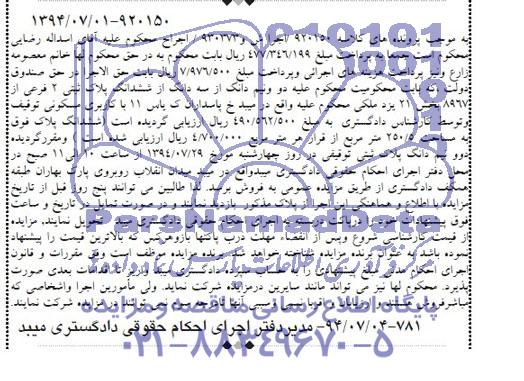 ۱۳۹۴/۰۷/۰۱-۹۲۰۱۵۰
به موجب پرونده های کلاسه ۹۲۰۱۵۰ اجرا ش و ۹۳۰۳۷۳ / اجراح محکوم علیه آقای اسداله رضایی
محکوم است به پرداخت مبلغ ۴۷۷/۳۴۶/۱۹۹ ریال بابت محکوم به در حق محکوم لها خانم معصومه
زارع ونیز پرداخت هزینه های اجرائی وپرداخت مبلغ ۷/۹۷۶/۵۰۰ ریال بابت حق الاجرا در حق صندوق
دولت که بابت محکومیت محکوم علیه دو ونیم دانگ از سه دانگ از ششدانگ پلاک ثبتی ۲ فرعی از
۸۹۶۷ بخش ۲۱ یزد ملکی محکوم علیه واقع در میبد خ پاسداران ک یاس ۱۱ با کاربری مسکونی توقیف
وتوسط کارشناس دادگستری به مبلغ ۴۹۰/۵۶۲/۵۰۰ ریال ارزیابی گردیده است (ششدانگ پلاک فوق
به مساحت ۲۵۰/۵ متر مربع از قرار هر متر مربع ۴/۷۰۰/۰۰۰ ریال ارزیابی شده است) ومقررگردیده
دوو نیم دانگ پلاک ثبتی توقیفی در روز چهارشنبه مورخ ۱۳۹۴/۰۷/۲۹ از ساعت ۱۰ الی ۱۱ صبح در
محل دفتر اجرای احکام حقوقی دادگستری میبدواقع در میبد میدان انقلاب روبروی پارک بهاران طبقه
همکف دادگستری از طریق مزایده عمومی به فروش برسد. لذا طالبین می توانند پنج روز قبل از تاریخ
مزایده با اطلاع و هماهنگی این دفتر از پلاک مذکور بازدید نمایند و در صورت تمایل در تاریخ و ساعت
فوق پیشنهادات خود را در پاکت دربسته به اجرای احکام حقوقی دادگستری میبد تحویل نمایند. مزایده
از قیمت کارشناسی شروع وپس از انقضاء مهلت درب پاکتها بازوهرکس که بالاترین قیمت را پیشنهاد
نموده باشد به عنوان برنده مزایده شناخته خواهد شد. برنده مزایده موظف است وفق مقررات و قانون
اجرای احکام مدنی مبلغ پیشنهادی را به حساب سپرده دادگستری میبد واریز تا اقدامات بعدی صورت
پذیرد. محکوم لها نیز می تواند مانند سایرین درمزایده شرکت نماید. ولی مأمورین اجرا واشخاصی که
مباشرفروش هستند و ارزیابان و اقربا نسبی وسببی آنها تادرجه سوم نمی توانند در مزایده شرکت نمایند.
۹۴/۰۷/۰۴-۷۸۱- مدیردفتر اجرای احکام حقوقی دادگستری میبد
ParsNamadData
پایگاه اطلاع رسانی مناقصه ومزایده
۰۲۱-۸۸۳۴۹۶۷۰-۵